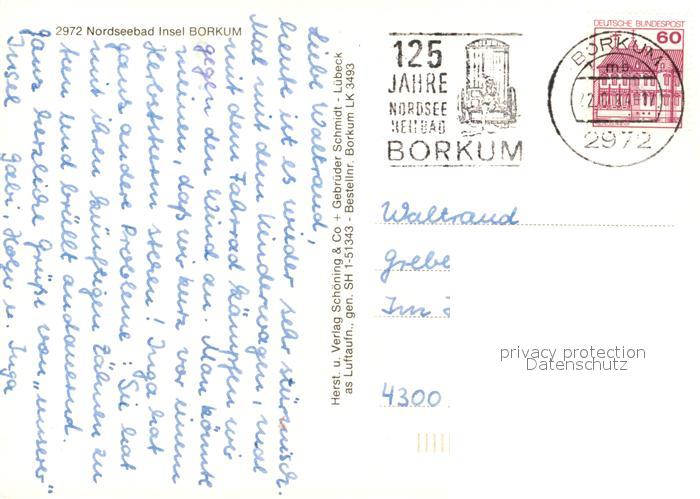 2972 Nordseebad Insel BORKUM
Liebe Waltraud,
heute ist es wieder sehr stürmisch.
Mal mit dem Kinderwagen, mal
mit dem Fahrrad kämpfen wir
gegen den Wind an. Man könnte
meinen, daß wir kurz vor einem
Herbststurm stehen! Inga hat
ganz andere Probleme: Sie hat
mit ihren künftigen Zähnen zu
tun und brüllt andauernd.
Ganz herzliche Grüße von "unserer"
Insel
Gabi, Holger u. Inga
Herst. u. Verlag Schöning & Co + Gebrüder Schmidt - Lübeck
as Luftaufn., gen. SH 1-51343 - Bestellnr. Borkum LK 3493
125
JAHRE
NORDSEE
HEILBAD
BORKUM
DEUTSCHE BUNDESPOST
60
BORKUM
mb
2972
Waltraud
Grebe
Im
4300
privacy protection
Datenschutz